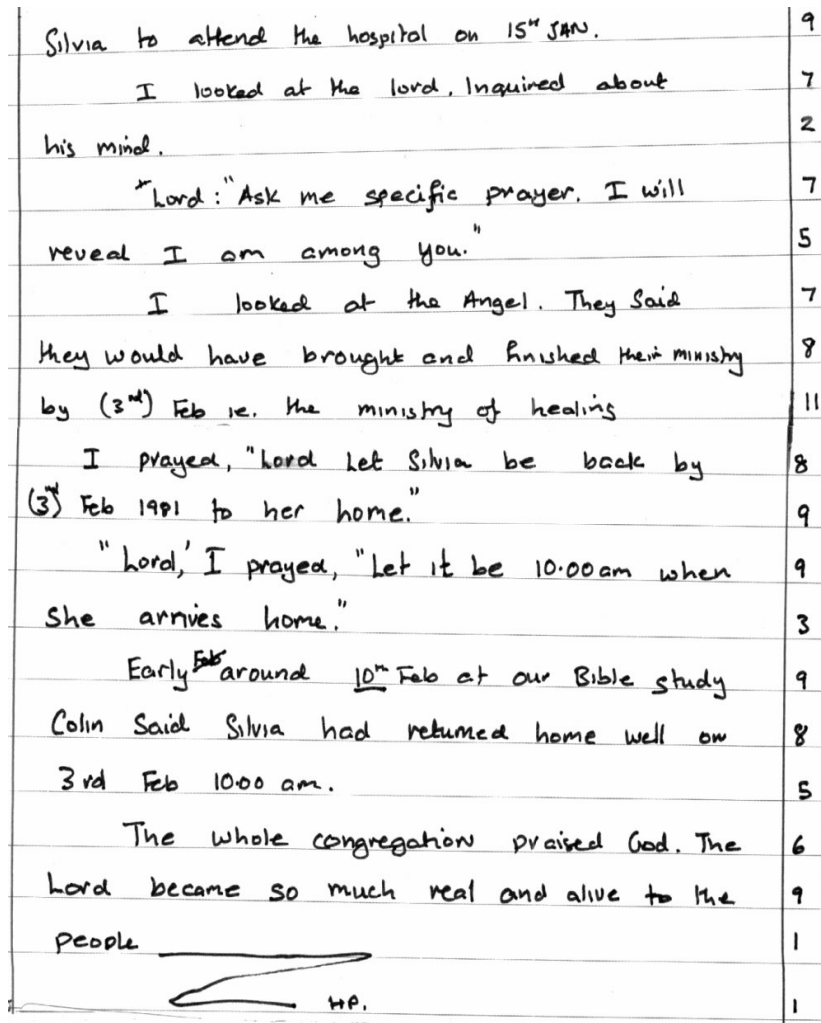 Silvia to attend the hospital on 15th JAN. 9
I looked at the lord. Inquired about 7
his mind. 2
*Lord: "Ask me specific prayer. I will 7
reveal I am among you." 5
I looked at the Angel. They Said 7
they would have brought and finished their ministry 8
by (3rd) Feb ie. the ministry of healing 11
I prayed, "Lord Let Silvia be back by 8
(3rd) Feb 1981 to her home." 9
"Lord,' I prayed, "Let it be 10.00am when 9
She arrives home." 3
Early around 10th Feb at our Bible study 9
Colin Said Silvia had returned home well on 8
3rd Feb 10.00 am. 5
The whole congregation praised God. The 6
Lord became so much real and alive to the 9
people 1
HP. 1